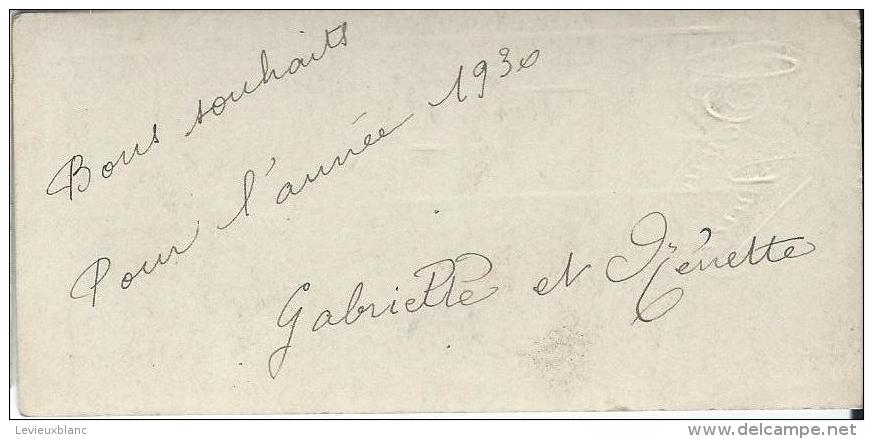 Bons souhaits
Pour l'année 1930
Gabrielle et Rénette
Levieuxblanc
www.delcampe.net